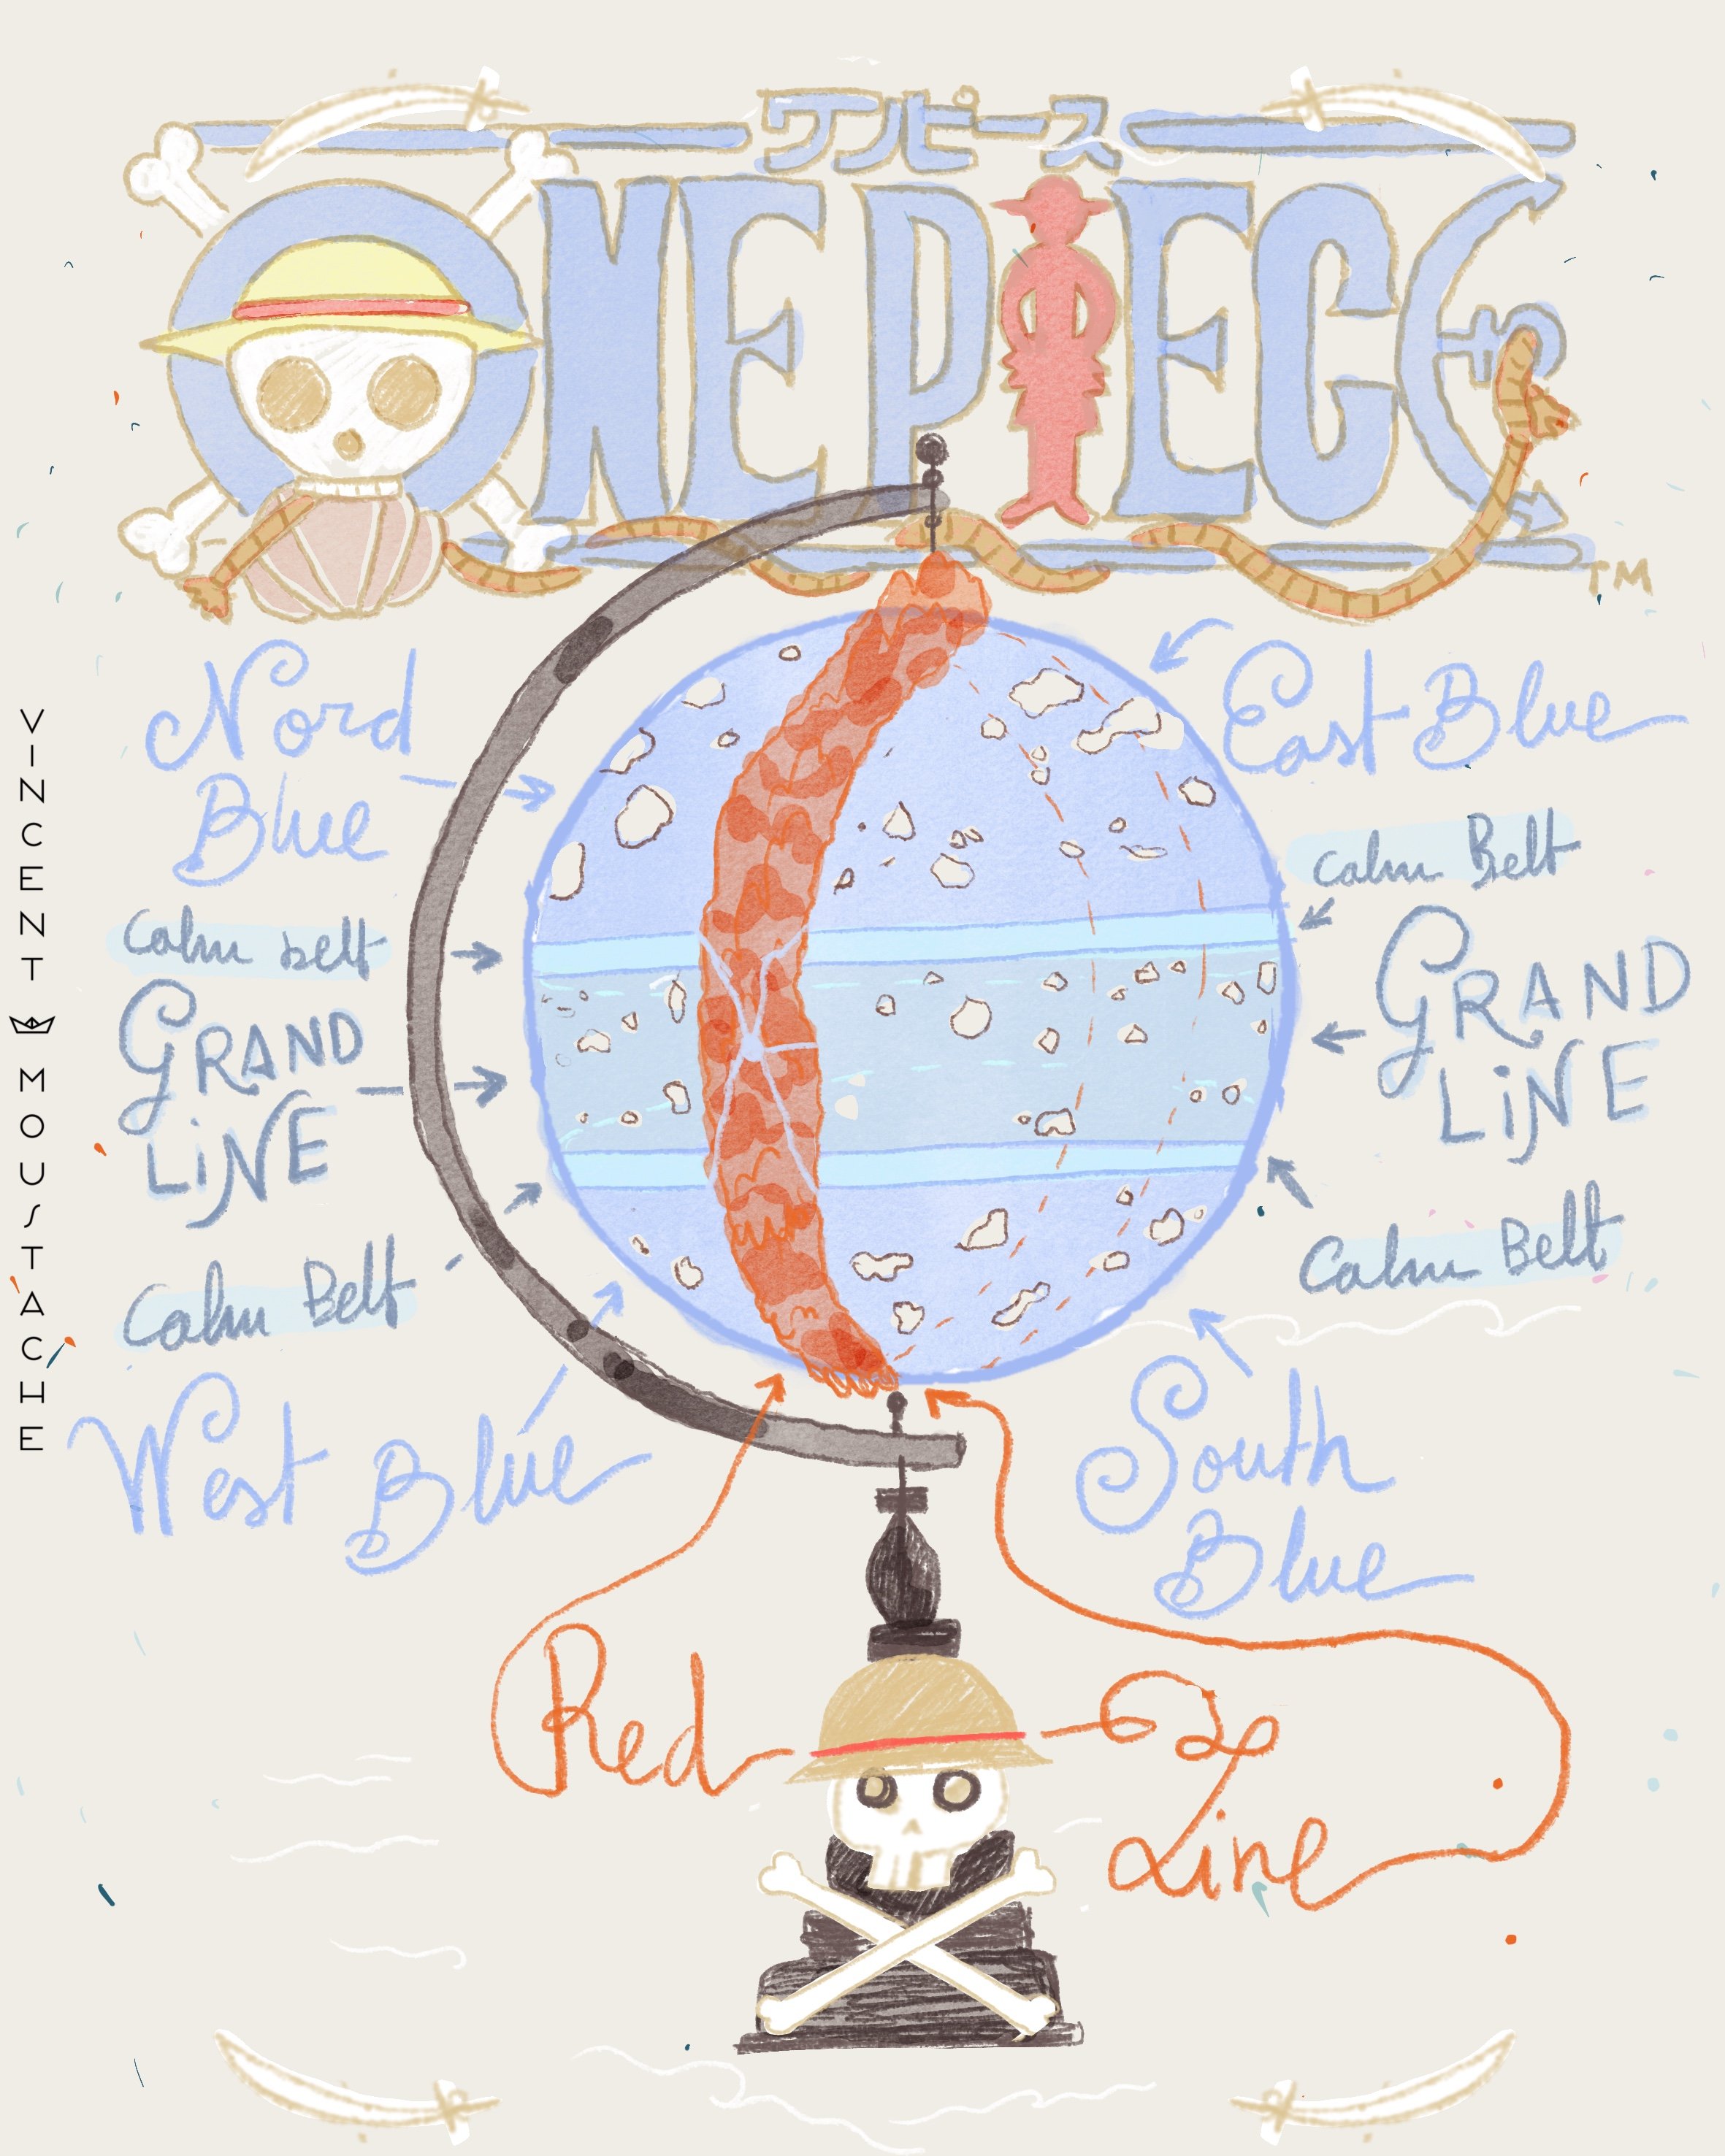 ワンピース
ONE PIECE
TM
Nord
Blue
East Blue
Calm belt
Calm Belt
GRAND
LiNE
GRAND
LiNE
Calm Belt
Calm Belt
West Blue
South
Blue
Red
Line
VINCENT MOUSTACHE